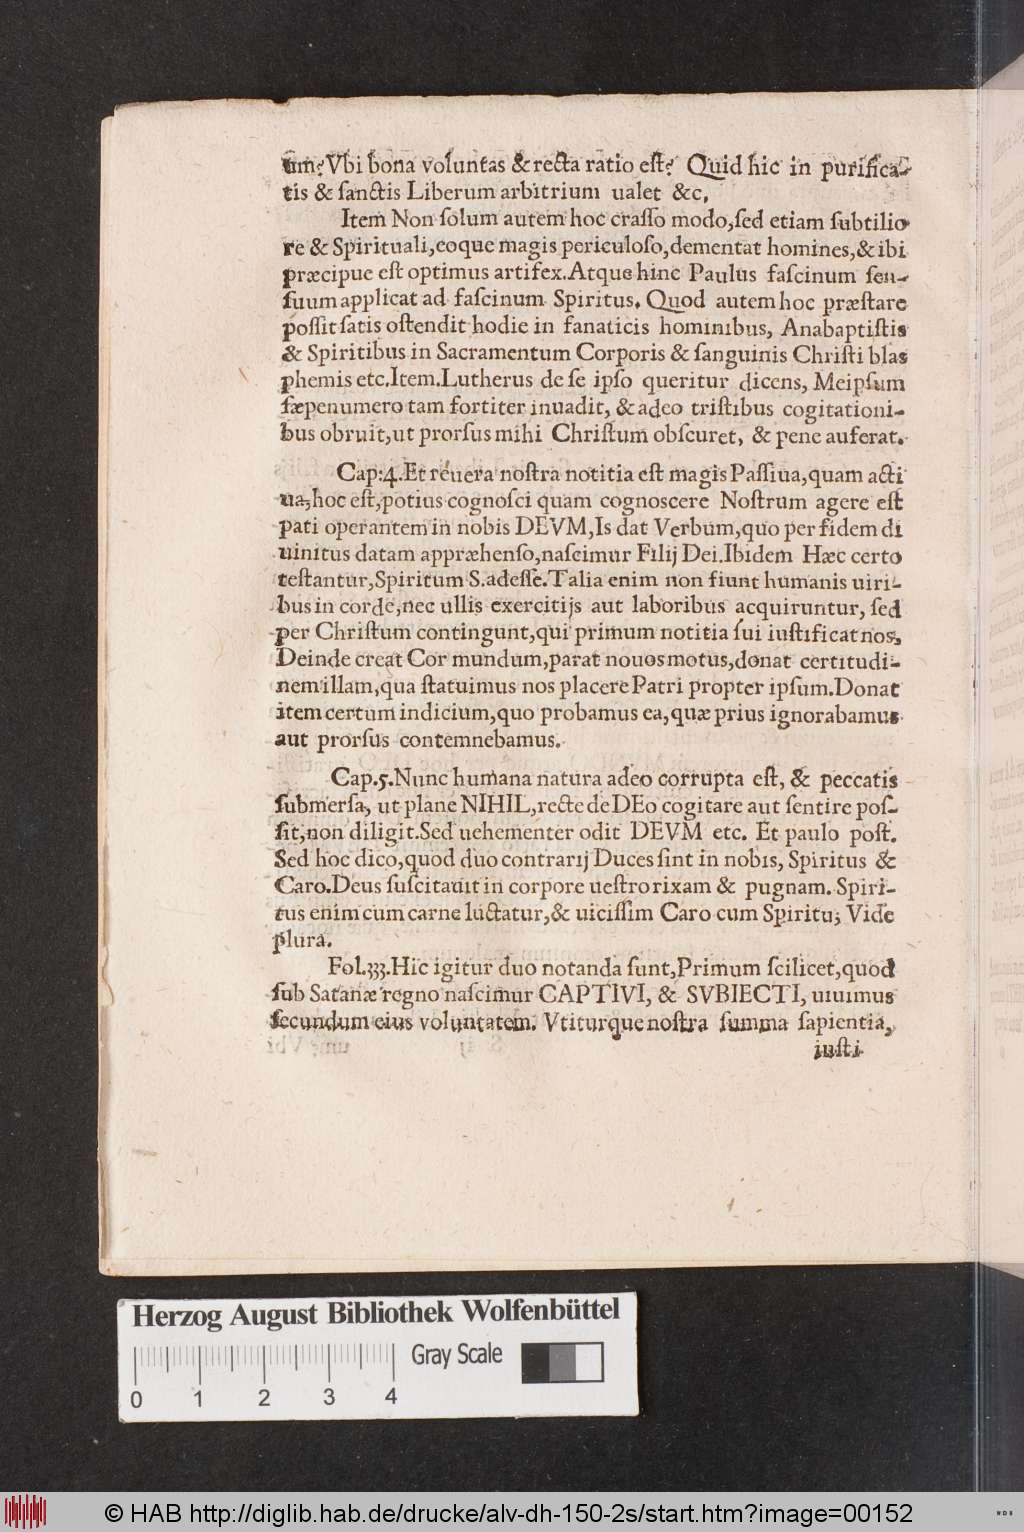 um? Vbi bona voluntas & recta ratio est? Quid hic in purifica-
tis & sanctis Liberum arbitrium ualet &c.
Item Non solum autem hoc crasso modo, sed etiam subtilio
re & Spirituali, eoque magis periculoso, dementat homines, & ibi
præcipue est optimus artifex. Atque hinc Paulus fascinum sen-
suum applicat ad fascinum Spiritus. Quod autem hoc præstare
possit satis ostendit hodie in fanaticis hominibus, Anabaptistis
& Spiritibus in Sacramentum Corporis & sanguinis Christi blas
phemis etc. Item. Lutherus de se ipso queritur dicens, Meipsum
sæpenumero tam fortiter inuadit, & adeo tristibus cogitationi-
bus obruit, ut prorsus mihi Christum obscuret, & pene auferat.
Cap: 4. Et reuera nostra notitia est magis Passiua, quam acti
ua, hoc est, potius cognosci quam cognoscere Nostrum agere est
pati operantem in nobis DEVM, Is dat Verbum, quo per fidem di
uinitus datam appræhenso, nascimur Filij Dei. Ibidem Hæc certo
testantur, Spiritum S. adesse. Talia enim non fiunt humanis uiri-
bus in corde, nec ullis exercitijs aut laboribus acquiruntur, sed
per Christum contingunt, qui primum notitia sui iustificat nos,
Deinde creat Cor mundum, parat nouos motus, donat certitudi-
nem illam, qua statuimus nos placere Patri propter ipsum. Donat
item certum indicium, quo probamus ea, quæ prius ignorabamus
aut prorsus contemnebamus.
Cap. 5. Nunc humana natura adeo corrupta est, & peccatis
submersa, ut plane NIHIL, recte de DEo cogitare aut sentire pos-
sit, non diligit. Sed uehementer odit DEVM etc. Et paulo post.
Sed hoc dico, quod duo contrarij Duces sint in nobis, Spiritus &
Caro. Deus suscitauit in corpore uestro rixam & pugnam. Spiri-
tus enim cum carne luctatur, & uicissim Caro cum Spiritu; Vide
plura.
Fol. 333. Hic igitur duo notanda sunt, Primum scilicet, quod
sub Satanæ regno nascimur CAPTIVI, & SVBIECTI, uiuimus
secundum eius voluntatem. Vtiturque nostra summa sapientia,
iusti
Herzog August Bibliothek Wolfenbüttel
Gray Scale
0 1 2 3 4
© HAB http://diglib.hab.de/drucke/alv-dh-150-2s/start.htm?image=00152